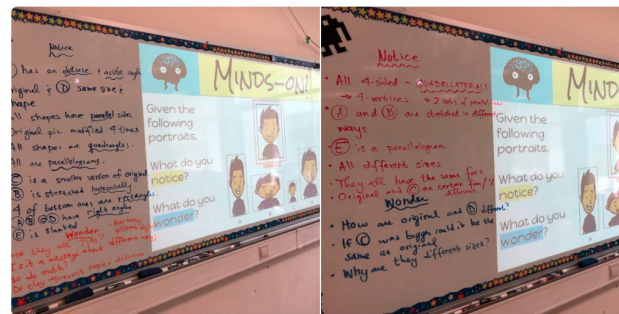 Notice
has an obtuse & acute angle
original & D same size &
shape
All shapes have parallel sides
Original pic modified 4 times
All shapes are quadrangles.
All are parallelograms.
E is a smaller version of original
B is stretched horizontally
4 of bottom ones are rectangles.
A B C D have right angles
E is slanted
Wonder
they all
Is it a message about different
math?
Do they represent people's
MINDS-ON!
Given the
following
portraits.
What do you
notice?
What do you
wonder?
Notice
All 4-sided - QUADRILATERALS
→ 4-vertices → 2 sets of parallel
A and B are stretched in different
ways
E is a parallelogram
All different sizes
They all have the same face
Original and C are certain
different
Wonder
How are original and D different?
If C was bigger could it be the
same as original
Why are they different sizes?
MIND
Given the
following
portraits.
What do you
notice?
What do you
wonder?